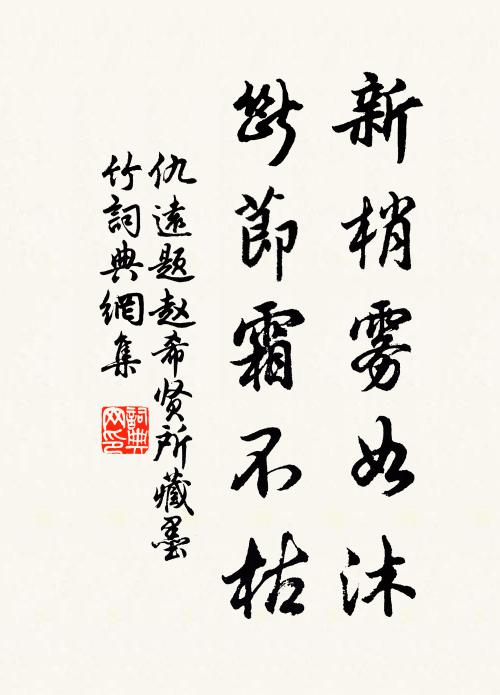 新梢雾如沐
断節霜不枯
仇遠题赵希贤所藏墨
竹詞典網集
詞典网印